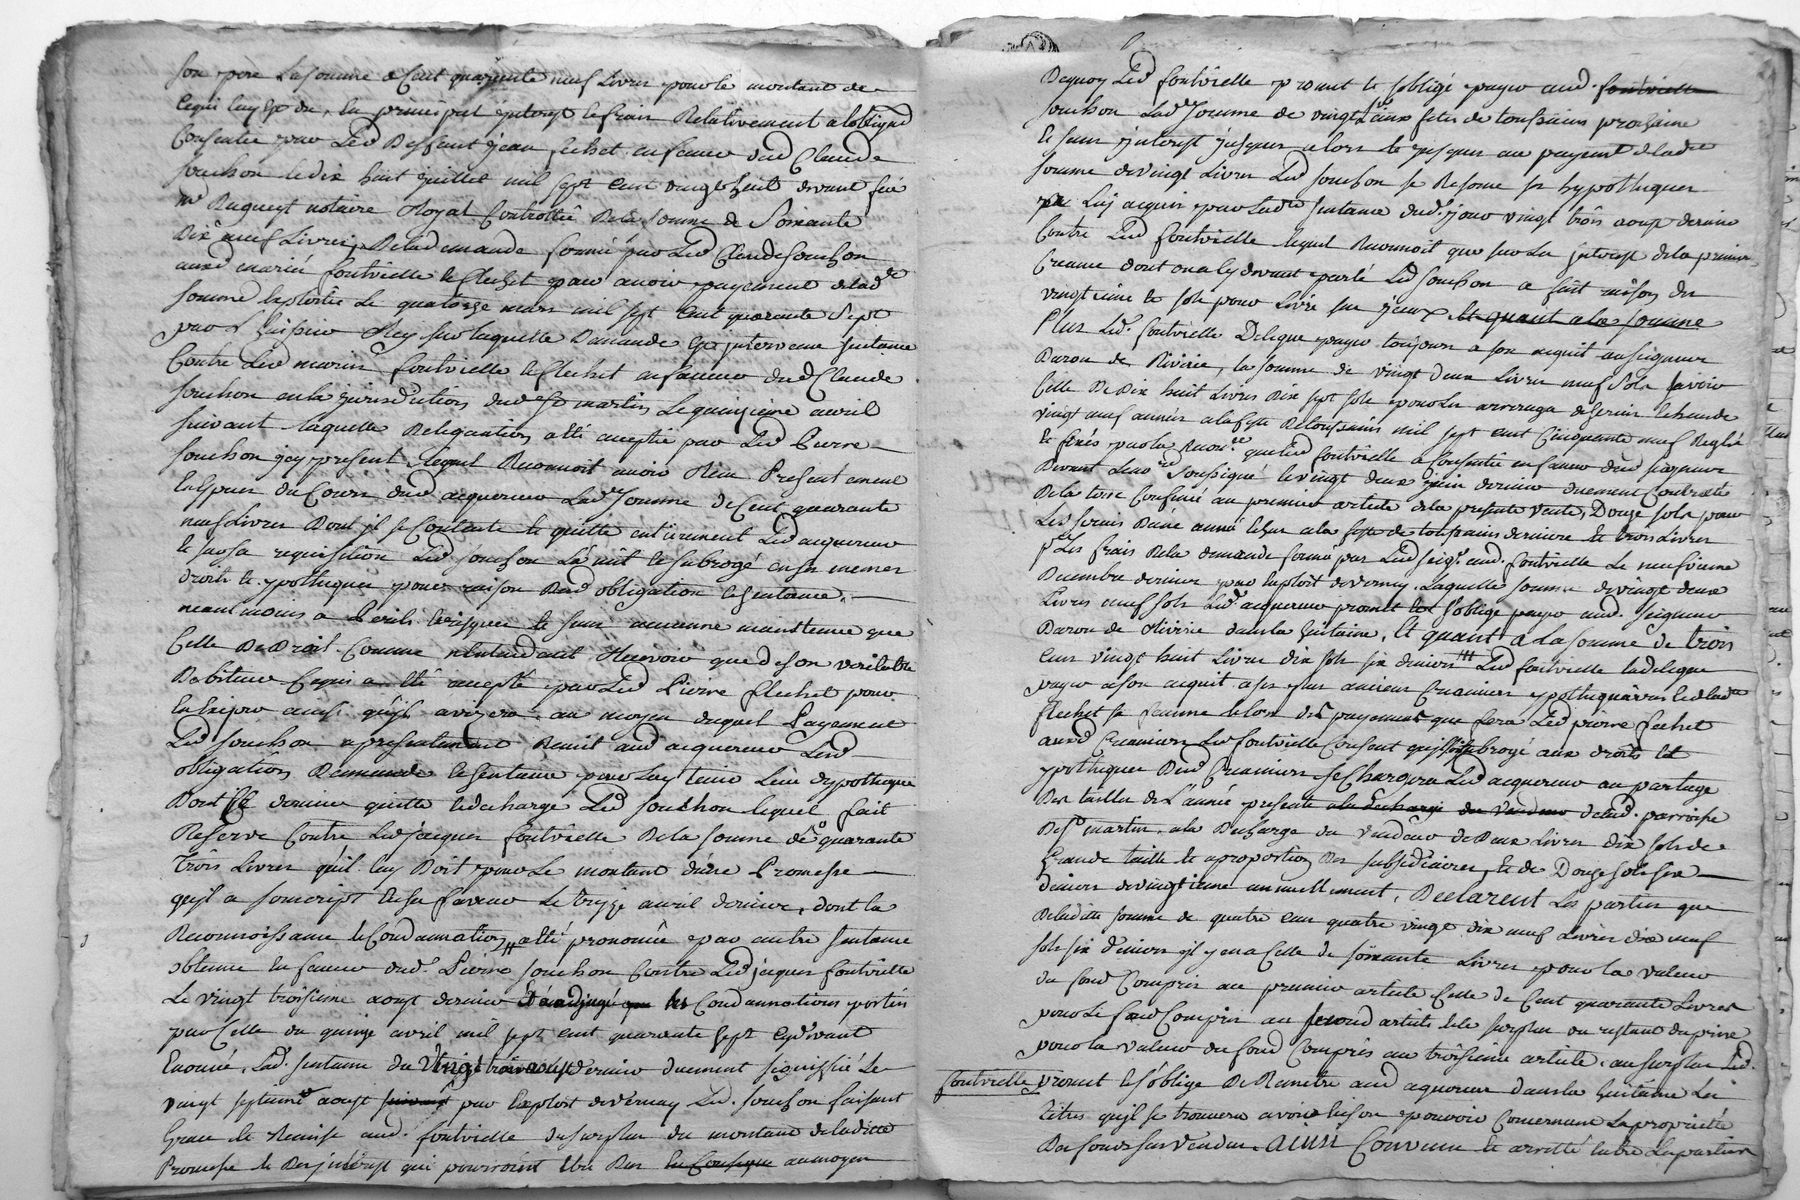 son pere La somme de Cent quarante neuf Livres pour le montant de
ce qui luy est du, en principal interest et frais Relativement a lobligaon
Consentie par Led Deffunt jean flechet en faveur dud Claude
souchon le dix huit juillet mil sept cent vingt huit devant feu
me Duguey notaire Royal Controllée De la somme de Soixante
Dix neuf Livres De la demande formée par Led Claude souchon
aux mariés fontvielle et flechet pour avoir payement de lad
somme Exploitée Le quatorze mars mil sept cent quarante sept
par huissier sur laquelle Demande est intervenue sentance
Contre Led mariés fontvielle et flechet en faveur dud Claude
souchon en la jurisdiction de St martin Le quinzieme avril
suivant laquelle Delegation a été acceptée par Led Pierre
souchon icy present lequel Reconnoit avoir Recu Presentement
En Especes du Cours dud acquereur Lade somme de Cent quarante
neuf Livres Dont il se Contente et quitte entierement Led acquereur
et par sa requisition Led souchon La mit et subrogé en ses memes
droits et ypotheques pour raison Dud obligation et sentance,
neanmoins a Perils et risques et sans aucune maintenue que
Celle De Droit. Comme n'entendant Recevoir que de son veritable
Debiteur Ce qui a été accepté par Led Pierre flechet pour
ainsi qu'il avizera. au moyen duquel Payement
Led souchon a presentement Remit aud acquereur Lesd
obligation Demande et sentance pour Luy tenir Lieu dypotheque
Dont Ce dernier quitte et decharge Led souchon lequel fait
Reserve Contre Led jacques fontvielle De la somme de quarante
Trois Livres qu'il luy Doit pour Le montant d'une Promesse
qu'il a souscript En sa faveur Le treize avril dernier, dont la
Reconnoissance et Condamnation a été prononcée par autre sentance
obtenue En faveur dud. Pierre souchon Contre Led jacques fontvielle
Le vingt troisieme aoust dernier les Condamnations portées
par Celle du quinze avril mil sept cent quarante sept cy devant
Enoncée, Lad. sentance du vingt trois aoust dernier duement signiffiée Le
vingt septieme aoust suivant par Exploit de vernay Led. souchon faisant
Grace et Remise aud. fontvielle du surplus du montant de ladite
Promesse et Des interest qui pourroient Etre Dus en Consequ au moyen
Dequoy Led fontvielle promet et s'oblige payer aud. fontvielle
souchon Lade somme de vingt Livres aux fetes de toussaints prochaine
Et sans interest jusques alors et jusques au payement de lade
somme de vingt Livres Led souchon se Reserve ses hypotheques
Luy acquis par Lade sentance dud. jour vingt trois aoust dernier
Contre Led fontvielle lequel Reconnoit que sur La interest de la premiere
Creance dont on a cy devant parlé Led souchon a fait raison du
vingtieme et sols pour Livre sur iceux Et quant a la somme
Plus Led. fontvielle Delegue payer toujours a son acquit au seigneur
Baron de Riverie, la somme de vingt deux Livres neuf sols savoir
Celle De Dix huit Livres Dix sept sols pour Les arrerages de servis Echus de
vingt neuf années a la feste De toussaints mil sept cent Cinquante neuf Reglé
et fixés par la Reconce que Led fontvielle a Consentie en faveur dud seigneur
Devant Leno re soussigné le vingt deux juin dernier duement Controllée
De la terre Confinée au premier article de la presente vente, Douze sols pour
Les servis D'une année Echue a la feste de toussaints derniere et trois Livres
pr Les frais De la demande formée par Led seigr. aud. fontvielle Le neufvieme
Decembre dernier par exploit de vernay. Laquelle somme de vingt deux
Livres neuf sols Led acquereur promet et s'oblige payer aud. seigneur
Baron de Riverie dans la huitaine, Et quant a La somme de trois
cent vingt huit Livres dix sols six deniers Led fontvielle la delegue
payer a son acquit a ses plus anciens Creanciers ypothequaires et de lade
flechet sa femme et lors des payements que fera Led pierre flechet
auxd Creanciers Led fontvielle Consent qu'il soit subrogé aux droits Et
ypotheques Desd Creanciers se Chargera Led acquereur au partage
Des tailles de L'année presente a la decharge du vendeur de lad. parroisse
De St martin. a la Decharge du vendeur de Deux Livres dix sols de
Grande taille et a proportion Des subsidiaires, et de Douze sols six
deniers de vingtieme annuellement, Declarent Les parties que
De ladite somme de quatre cent quatre vingt dix neuf Livres dix neuf
sols six deniers il y en a Celle de soixante Livres pour la valeur
du fond Compris au premier article Celle de Cent quarante Livres
pour Le fond Compris au second article Et le surplus ou restant du prix
pour la valeur du fond Compris au troisieme article. au surplus Led.
fontvielle promet et s'oblige De Remettre aud acquereur dans la huitaine Les
titres qu'il se trouvera avoir En son pouvoir Concernant La proprieté
Des fonds sus vendus. ainsi Convenu et arretté Entre Les parties